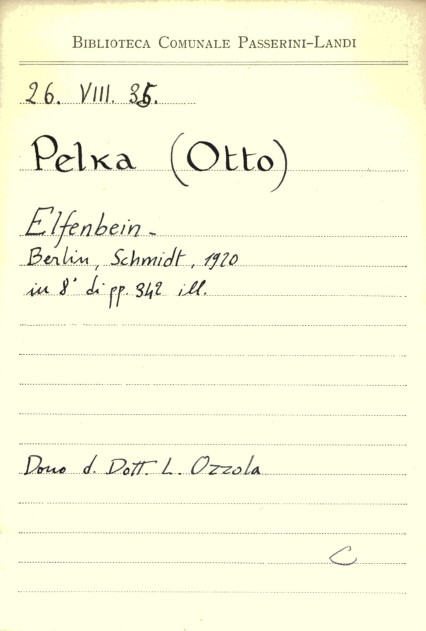 BIBLIOTECA COMUNALE PASSERINI-LANDI
26. VIII. 35.
Pelka (Otto)
Elfenbein -
Berlin, Schmidt, 1920
in 8° di pp. 342 ill.
Dono d. Dott. L. Ozzola
C